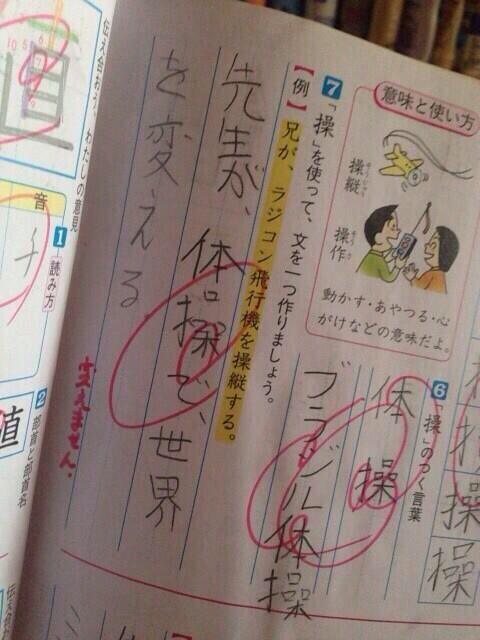 意味と使い方
操縦
そうじゅう
操作
そうさ
動かす・あやつる・心
がけなどの意味だよ。
6 「操」のつく言葉
体操
ブラジル体操
操
操
7 「操」を使って、文を一つ作りましょう。
【例】兄が、ラジコン飛行機を操縦する。
先生が、体操で、世界
を変える。
変えません。
伝え合おう、わたしの意見
直
音
1 読み方
チ
2 部首と部首名
値